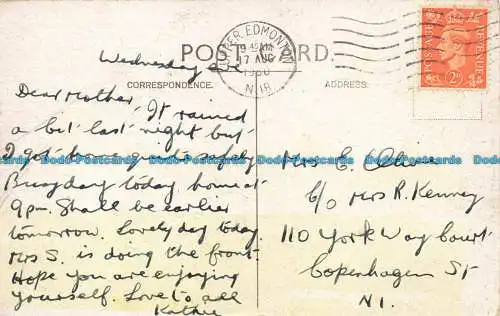 UPPER EDMONTON
9 45 AM
17 AUG
1950
N.18
POSTAGE REVENUE
2D
POST CARD.
CORRESPONDENCE.
ADDRESS.
Wednesday eve
Dear Mother, It rained
a bit last night but
I got home quite safely
Busy day today, home at
9pm. Shall be earlier
tomorrow. Lovely day today.
Mrs S. is doing the front
Hope you are enjoying
yourself. Love to all
Kathie
Mrs E.
c/o Mrs R. Kenney
110 York Way Court
Copenhagen St
N1.
Dodo-Postcards Dodo-Postcards Dodo-Postcards Dodo-Postcards